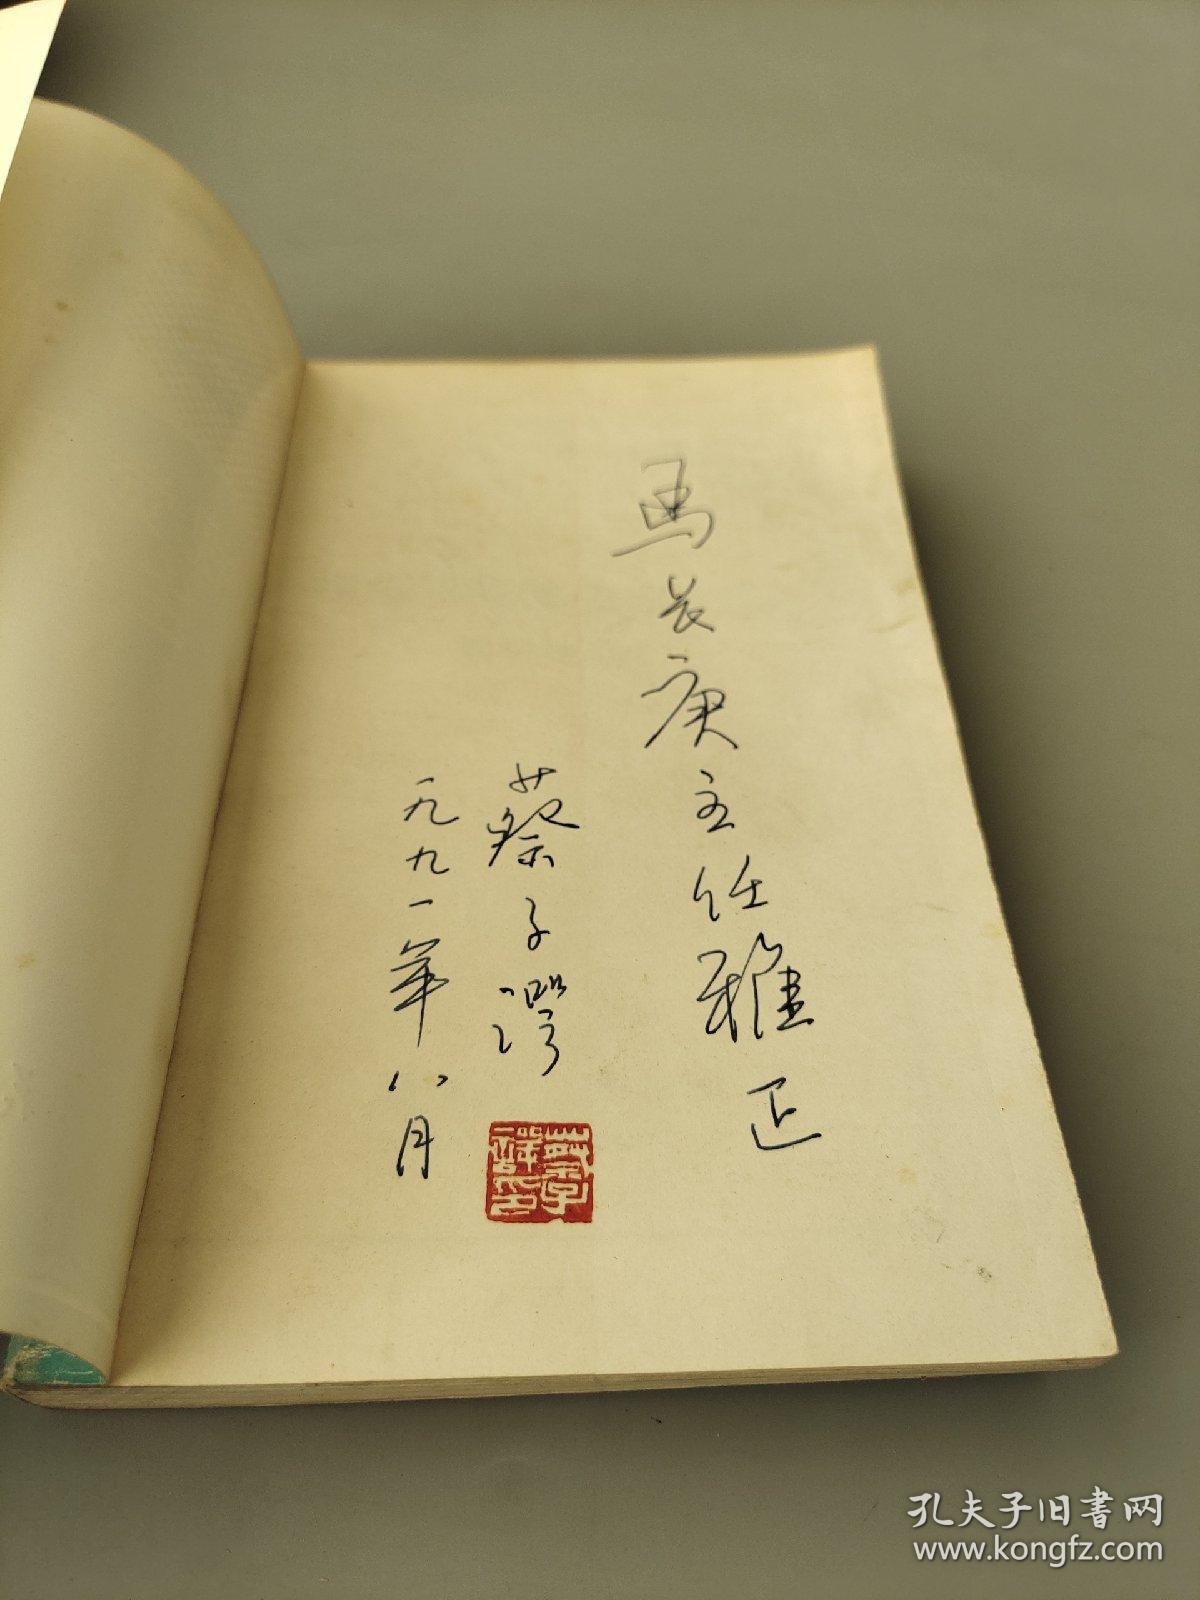 馬长庚主任雅正
蔡子谔
一九九一年八月
蔡子
谔印
孔夫子旧书网
www.kongfz.com